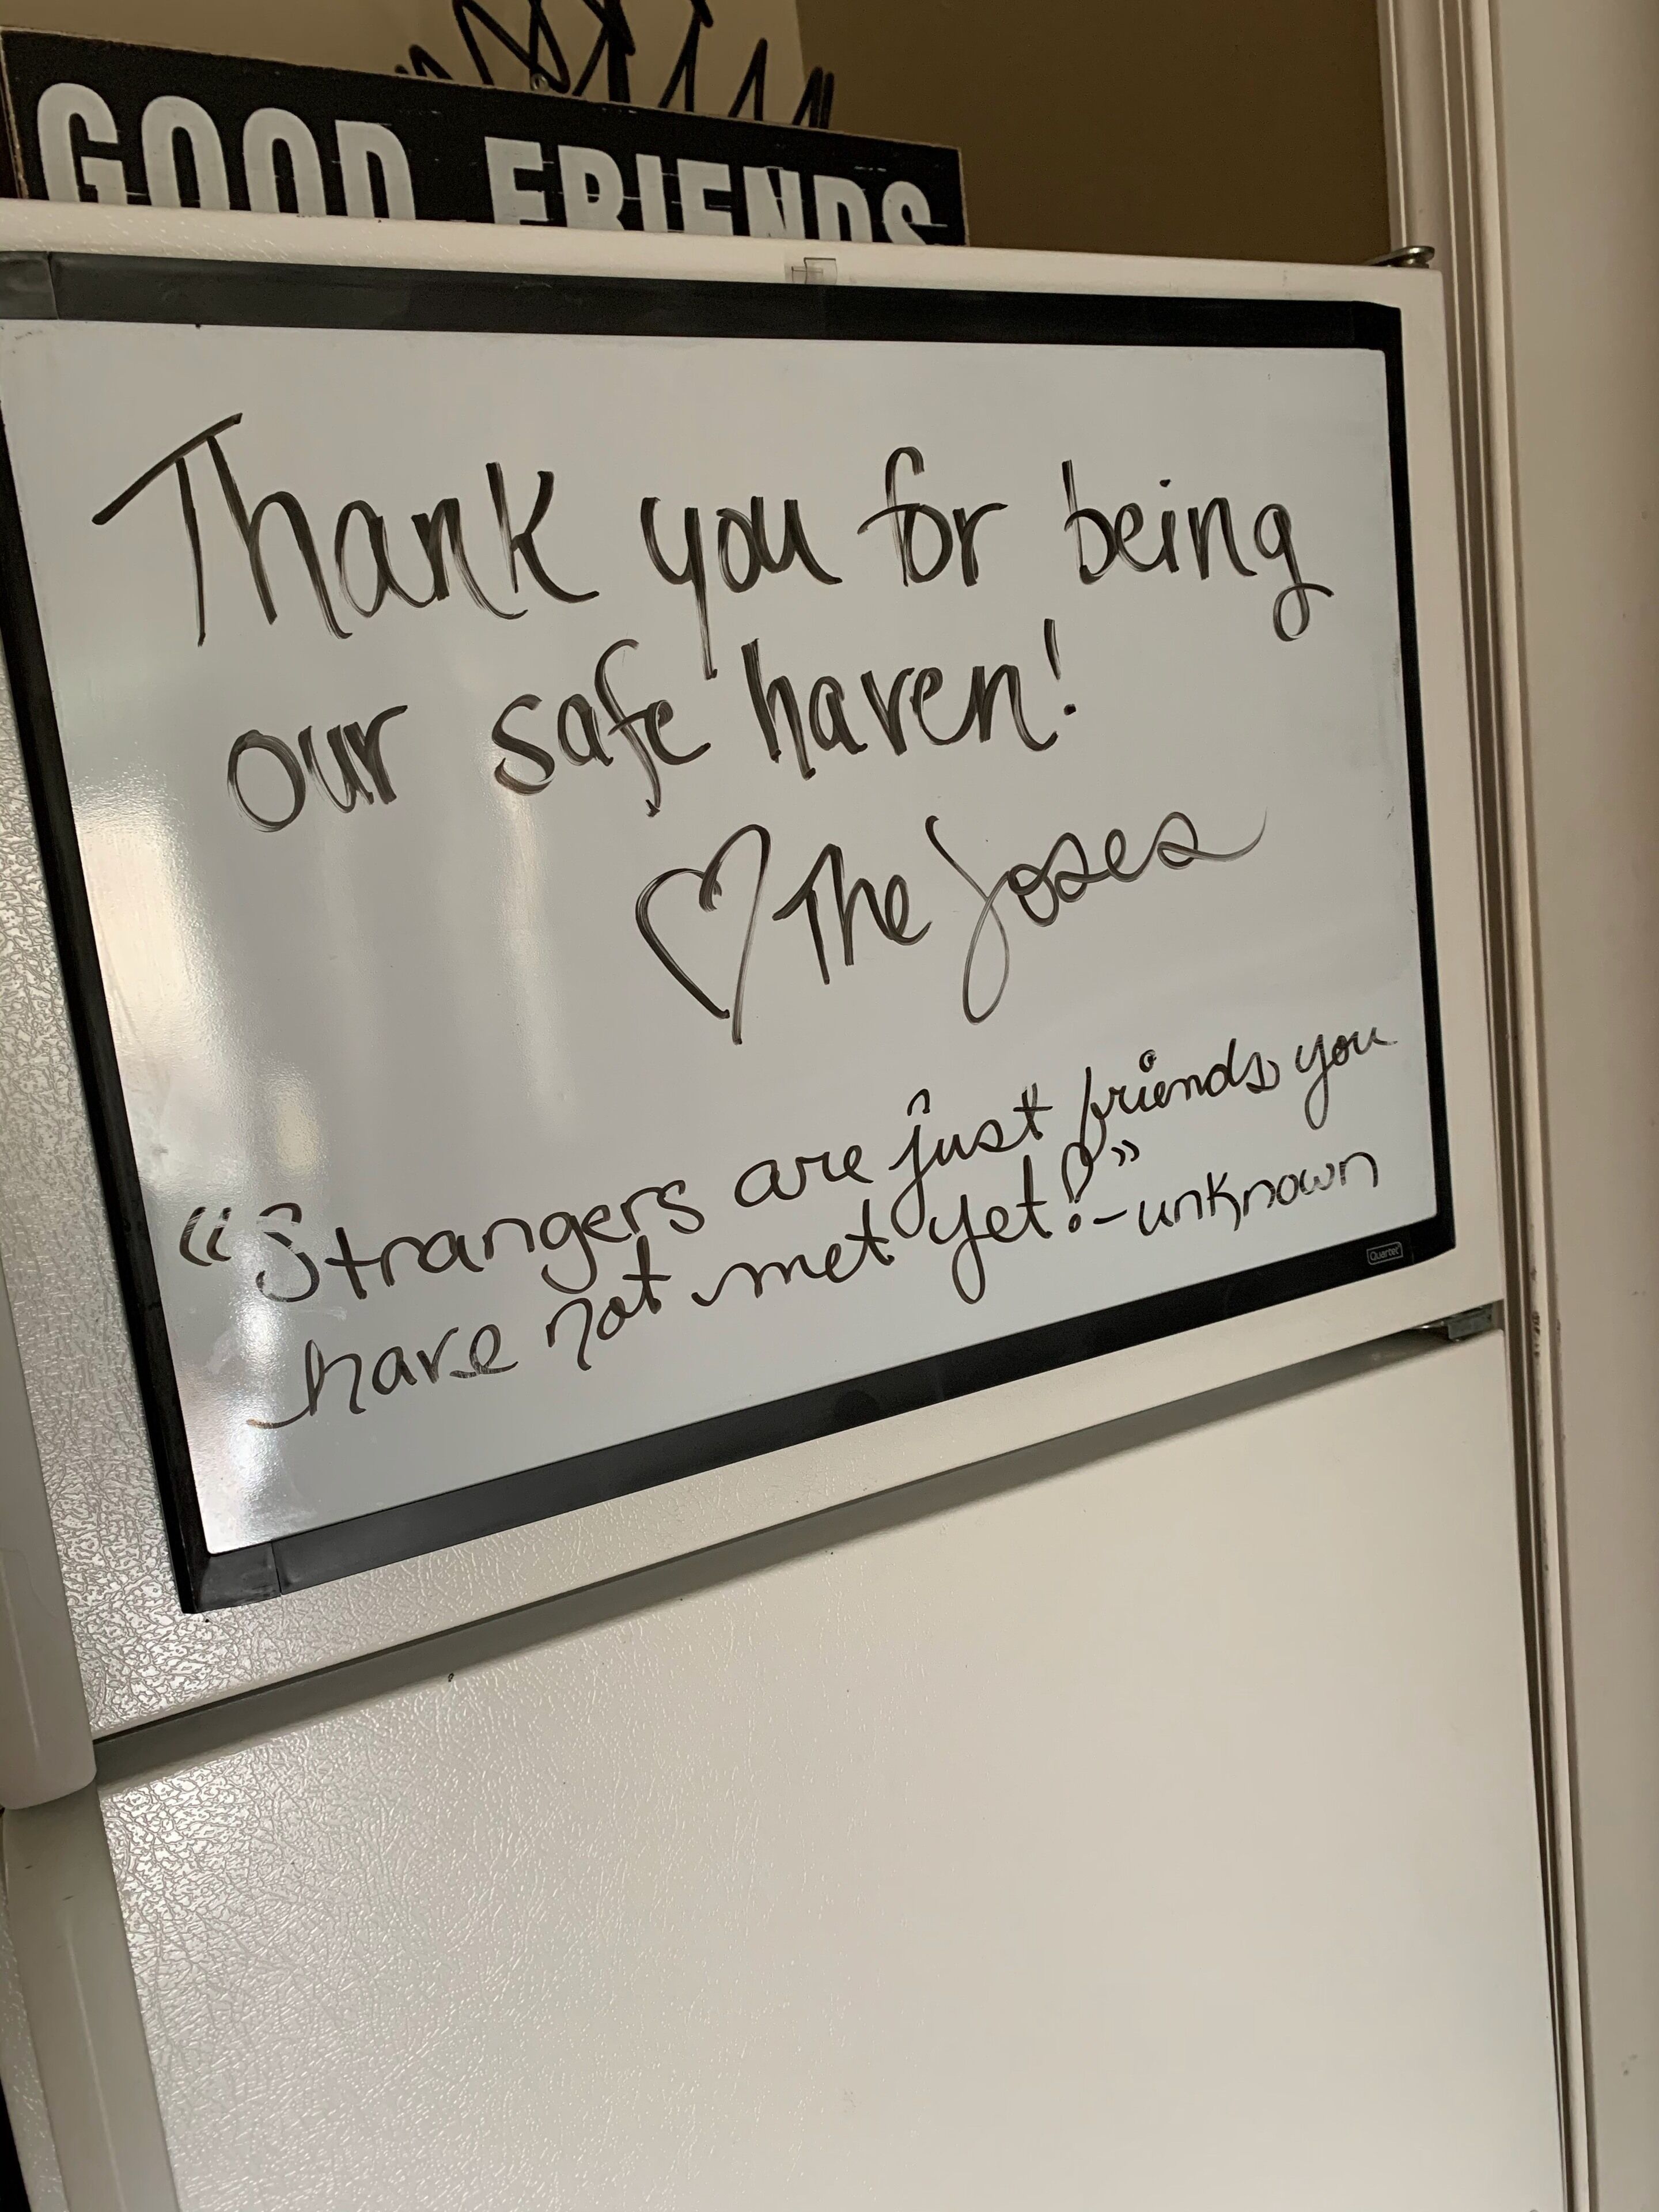 GOOD FRIENDS
Thank you for being
our safe haven!
♡ The Joses
“Strangers are just friends you
have not met yet!” - unknown
Quartet